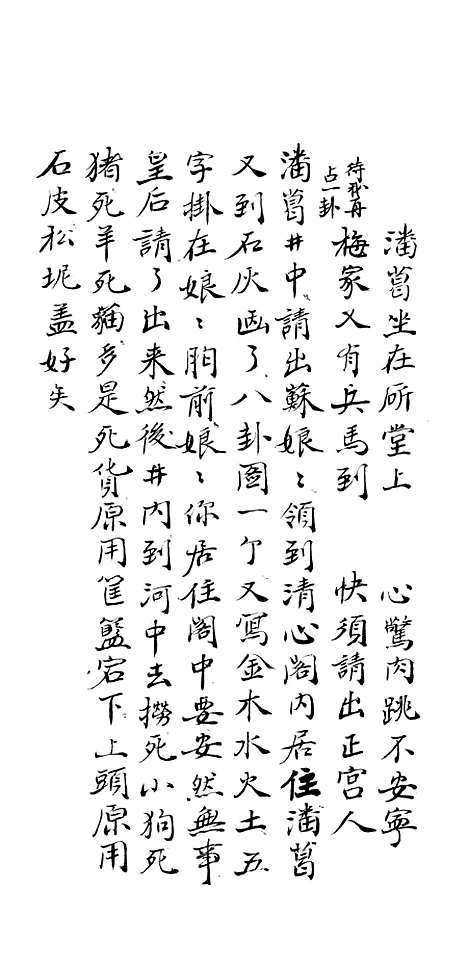 潘葛坐在所堂上　心驚肉跳不安寧
待我再占一卦
梅家又有兵馬到　快須請出正宮人
潘葛井中請出蘇娘〻領到清心閣內居住潘葛
又到石灰画了八卦圖一个又寫金木水火土五
字掛在娘〻胷前娘〻你居住閣中要安然無事
皇后請了出来然後井內到河中去撈死小狗死
猪死羊死貓多是死貨原用筐籃宕下上頭原用
石皮松坭盖好矣